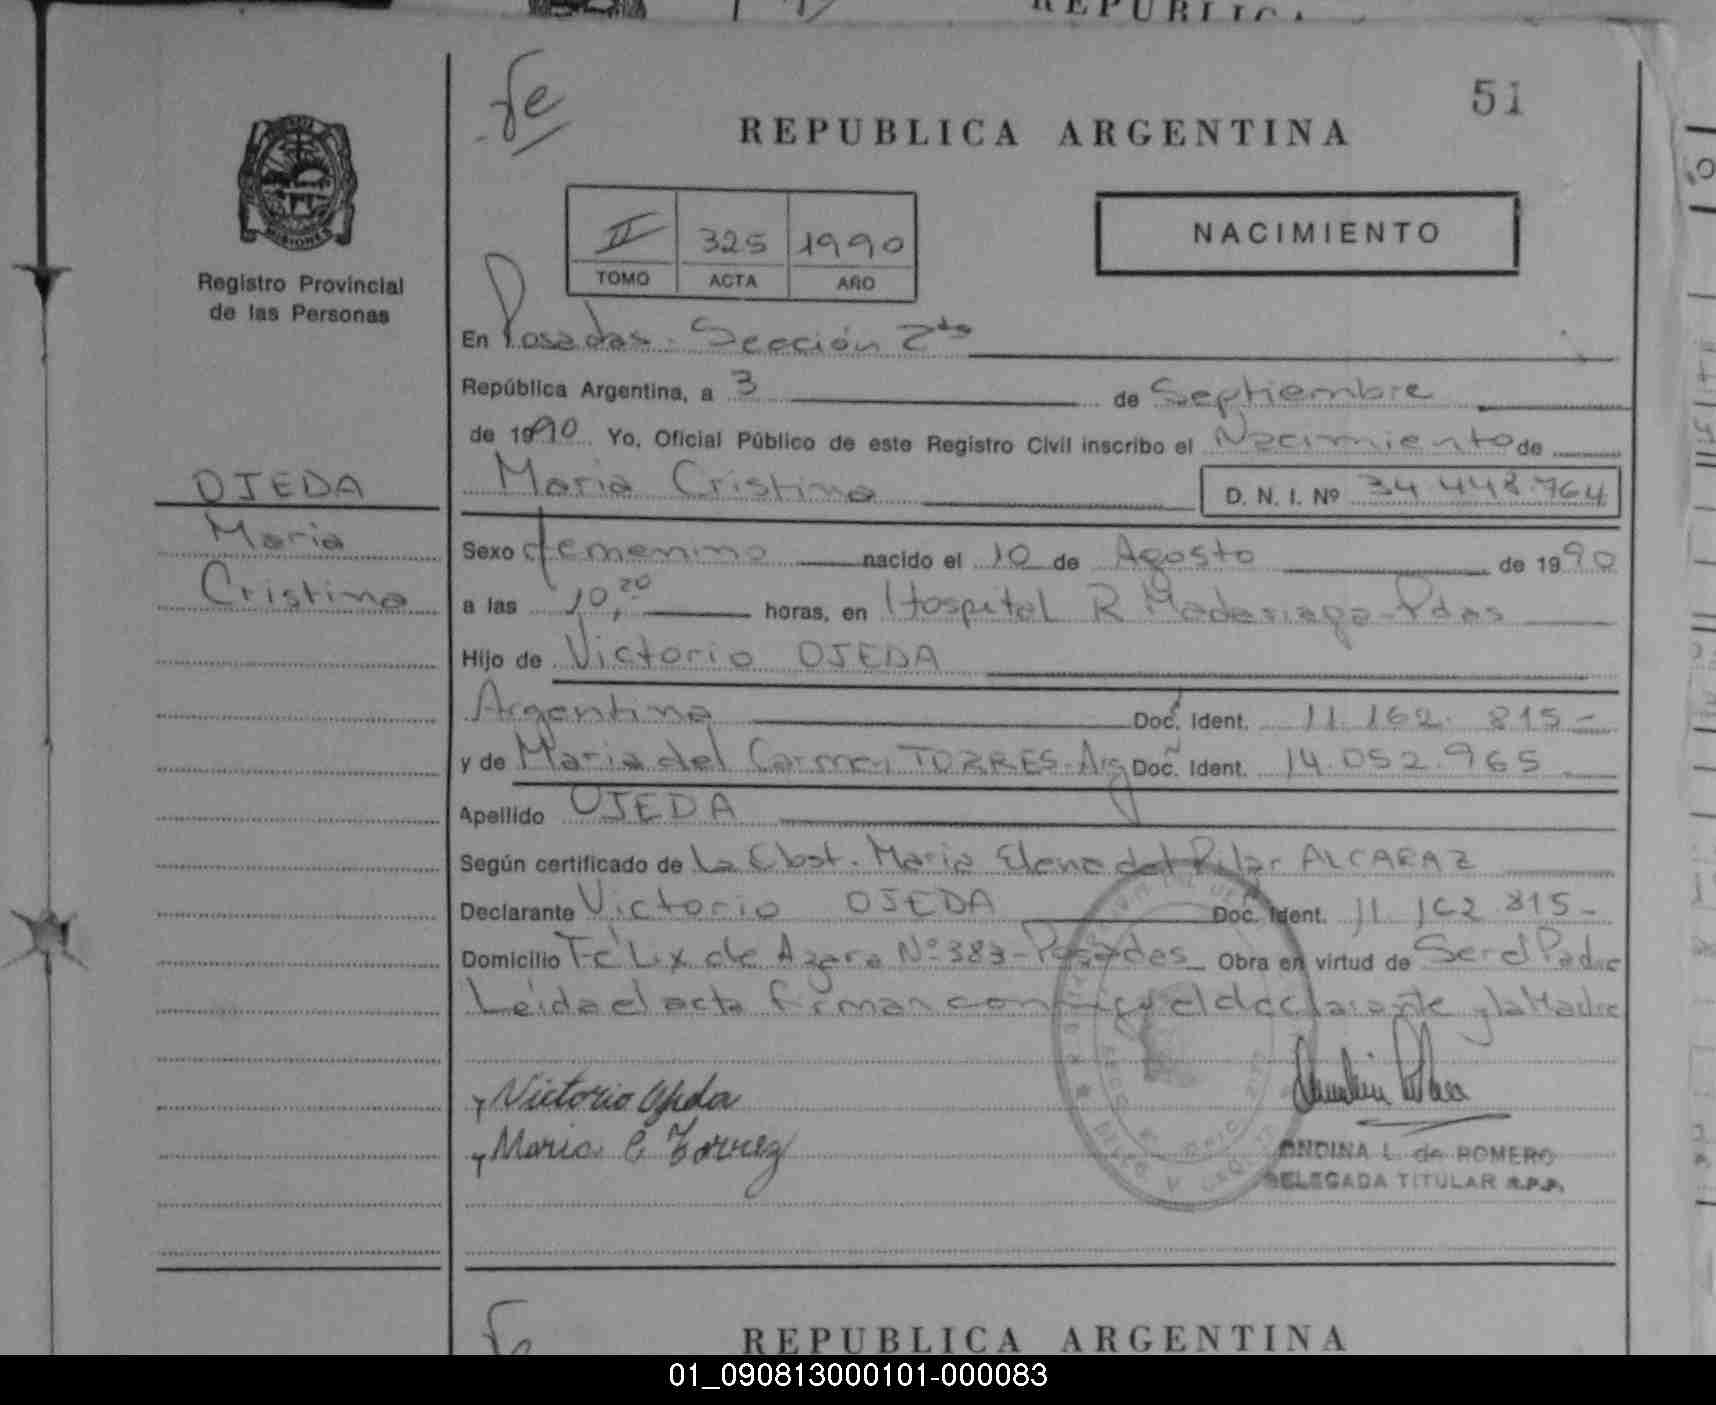 REPUBLICA
fe
51
REPUBLICA ARGENTINA
MISIONES
Registro Provincial
de las Personas
II 325 1990
TOMO ACTA AÑO
NACIMIENTO
En Posadas - Sección 2da
República Argentina, a 3 de Septiembre
de 1990 Yo, Oficial Público de este Registro Civil inscribo el Nacimiento de
OJEDA
Maria Cristina D. N. I. Nº 34.448.764
Maria
Cristina
Sexo femenino nacido el 10 de Agosto de 1990
a las 10,20 horas, en Hospital R Madariaga - Pdas
Hijo de Victorio OJEDA
Argentina Doc. Ident. 11.162.815-
y de Maria del Carmen TORRES - Arg Doc. Ident. 14.052.965
Apellido OJEDA
Según certificado de La Obst. Maria Elena del Pilar ALCARAZ
Declarante Victorio OJEDA Doc. Ident. 11.162.815-
Domicilio Félix de Azara Nº 383 - Posadas Obra en virtud de Ser el Padre
Leida el acta firman conmigo el declarante y la Madre
Victorio Ojeda
Maria C Torrez
ONDINA L. de ROMERO
DELEGADA TITULAR R.P.P.
fe
REPUBLICA ARGENTINA
01_090813000101-000083